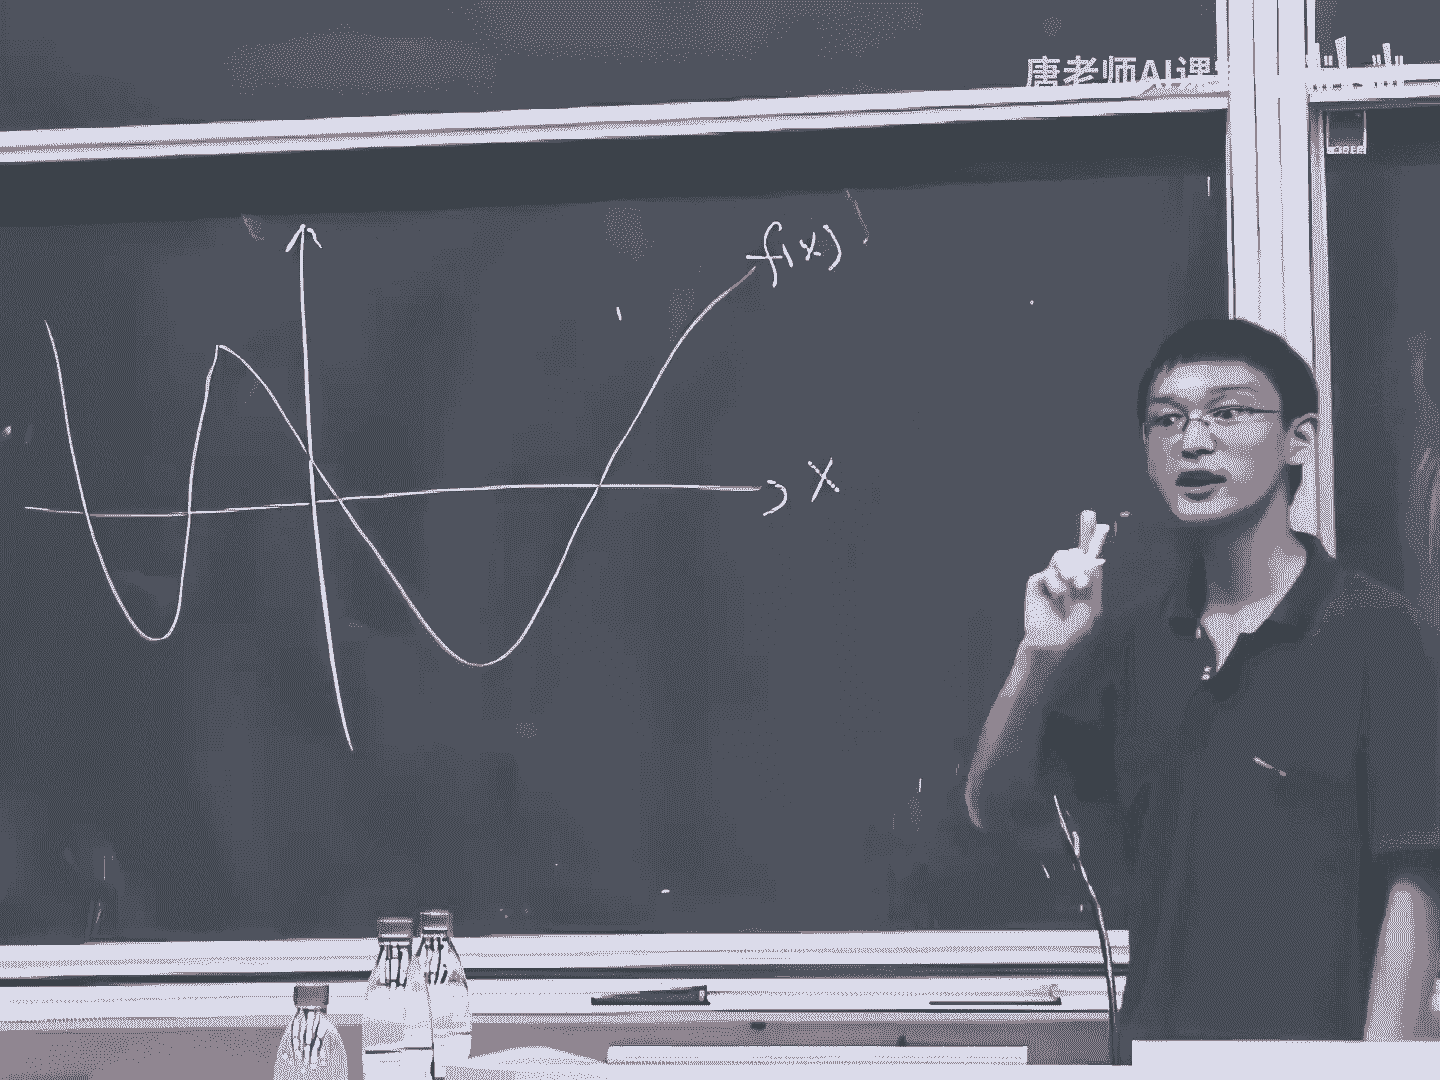 唐老师AI课
f(x)
x